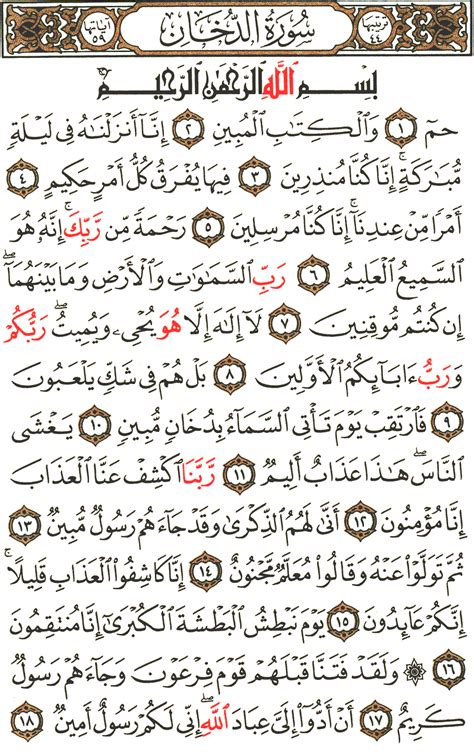 ترتيبها ٤٤ سُورَةُ الدُّخَانِ آياتها ٥٩
بِسْمِ ٱللَّهِ ٱلرَّحْمَٰنِ ٱلرَّحِيمِ
حمٓ ١ وَٱلْكِتَٰبِ ٱلْمُبِينِ ٢ إِنَّآ أَنزَلْنَٰهُ فِى لَيْلَةٍ
مُّبَٰرَكَةٍ ۚ إِنَّا كُنَّا مُنذِرِينَ ٣ فِيهَا يُفْرَقُ كُلُّ أَمْرٍ حَكِيمٍ ٤
أَمْرًا مِّنْ عِندِنَآ ۚ إِنَّا كُنَّا مُرْسِلِينَ ٥ رَحْمَةً مِّن رَّبِّكَ ۚ إِنَّهُۥ هُوَ
ٱلسَّمِيعُ ٱلْعَلِيمُ ٦ رَبِّ ٱلسَّمَٰوَٰتِ وَٱلْأَرْضِ وَمَا بَيْنَهُمَآ ۖ
إِن كُنتُم مُّوقِنِينَ ٧ لَآ إِلَٰهَ إِلَّا هُوَ يُحْىِۦ وَيُمِيتُ ۖ رَبُّكُمْ
وَرَبُّ ءَابَآئِكُمُ ٱلْأَوَّلِينَ ٨ بَلْ هُمْ فِى شَكٍّ يَلْعَبُونَ
٩ فَٱرْتَقِبْ يَوْمَ تَأْتِى ٱلسَّمَآءُ بِدُخَانٍ مُّبِينٍ ١٠ يَغْشَى
ٱلنَّاسَ ۖ هَٰذَا عَذَابٌ أَلِيمٌ ١١ رَّبَّنَا ٱكْشِفْ عَنَّا ٱلْعَذَابَ
إِنَّا مُؤْمِنُونَ ١٢ أَنَّىٰ لَهُمُ ٱلذِّكْرَىٰ وَقَدْ جَآءَهُمْ رَسُولٌ مُّبِينٌ ١٣
ثُمَّ تَوَلَّوْا۟ عَنْهُ وَقَالُوا۟ مُعَلَّمٌ مَّجْنُونٌ ١٤ إِنَّا كَاشِفُوا۟ ٱلْعَذَابِ قَلِيلًا ۚ
إِنَّكُمْ عَآئِدُونَ ١٥ يَوْمَ نَبْطِشُ ٱلْبَطْشَةَ ٱلْكُبْرَىٰٓ إِنَّا مُنتَقِمُونَ
١٦ ۞ وَلَقَدْ فَتَنَّا قَبْلَهُمْ قَوْمَ فِرْعَوْنَ وَجَآءَهُمْ رَسُولٌ
كَرِيمٌ ١٧ أَنْ أَدُّوٓا۟ إِلَىَّ عِبَادَ ٱللَّهِ ۖ إِنِّى لَكُمْ رَسُولٌ أَمِينٌ ١٨